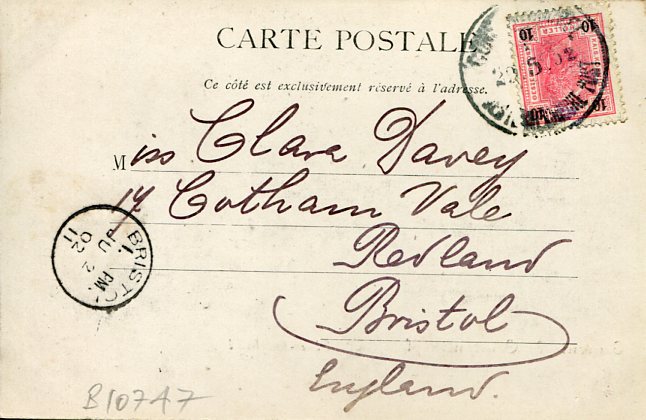 CARTE POSTALE
Ce côté est exclusivement réservé à l'adresse.
Miss Clara Davey
14 Cotham Vale
Redland
Bristol
England.
BRISTOL
1 PM
JU 2
02
11
10 10
10 10
B10747